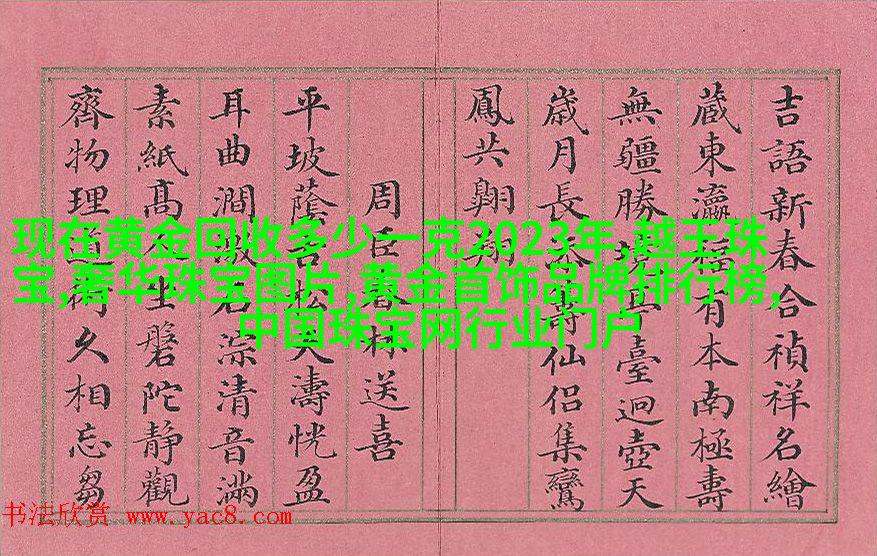 吉語新春合禎祥名繪
藏東瀛有本南極壽
無疆勝臺迥壺天
歲月長壽仙侶集鸞
鳳共翱翔
周臣送喜
平坡蔭天濤恍盈
耳曲澗石淙清音滿
素紙高坐磐陀靜觀
齊物理久相忘芻
现在黄金回收多少一克2023年,越王珠
宝,奢华珠宝图片,黄金首饰品牌排行榜,
中国珠宝网行业门户
书法欣赏 www.yac8.com